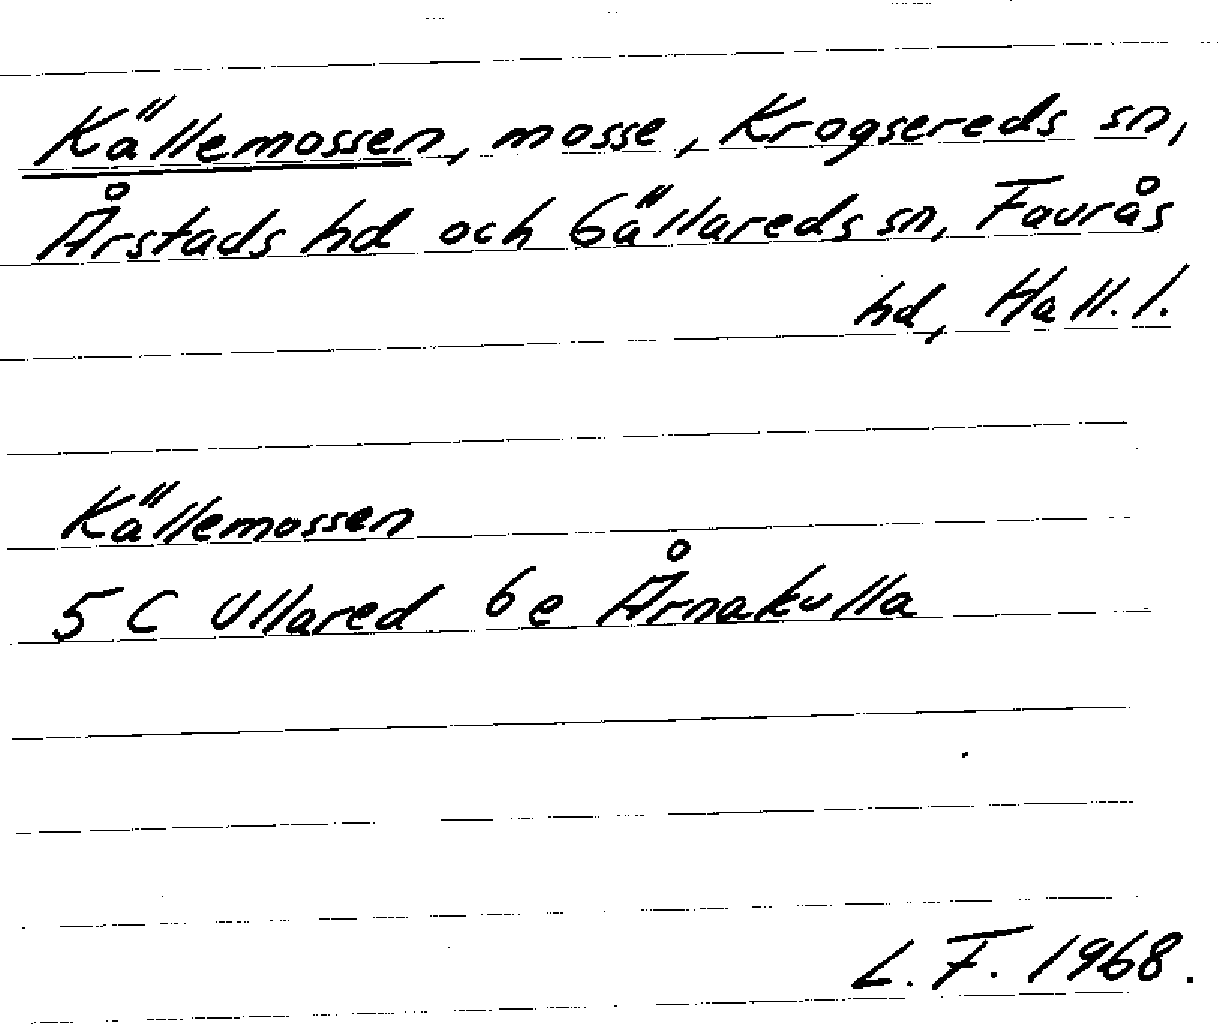 Källemossen, mosse, Krogsereds sn,
Årstads hd och Gällareds sn, Faurås
hd, Hall. l.
Källemossen
5 C Ullared 6 e Årnakulla
L. F. 1968.